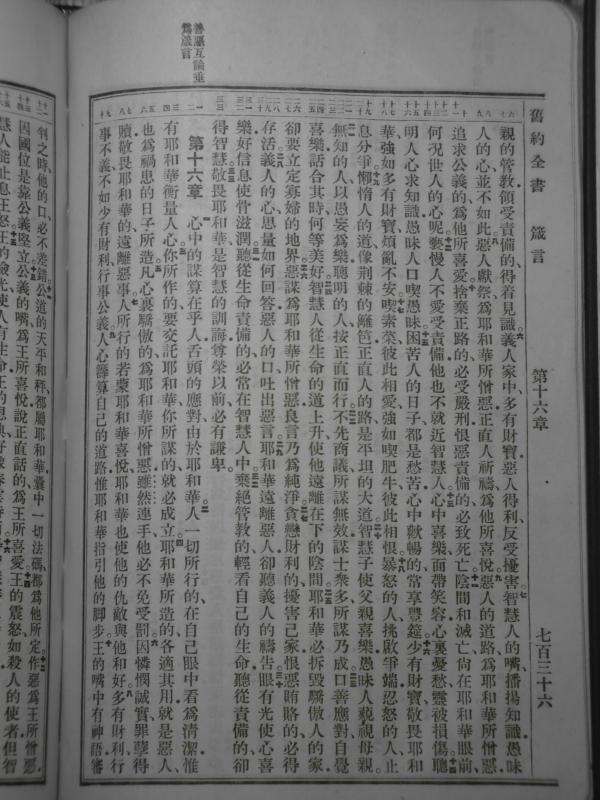 舊約全書 箴言 第十六章 七百三十六
善惡互論垂
爲箴言
親的管教領受責備的得着見識義人家中多有財寶惡人得利反受擾害智慧人的嘴播揚知識愚昧
人的心並不如此惡人獻祭爲耶和華所憎惡正直人祈禱爲他所喜悅惡人的道路爲耶和華所憎惡
追求公義的爲他所喜愛捨棄正路的必受嚴刑恨惡責備的必致死亡陰間和滅亡尙在耶和華眼前
何況世人的心呢褻慢人不愛受責備他也不就近智慧人心中喜樂面帶笑容心裏憂愁靈被損傷聰
明人心求知識愚昧人口喫愚昧困苦人的日子都是愁苦心中歡暢的常享豐筵少有財寶敬畏耶和
華強如多有財寶煩亂不安喫素菜彼此相愛強如喫肥牛彼此相恨暴怒的人挑啟爭端忍怒的人止
息分爭懶惰人的道像荊棘的籬笆正直人的路是平坦的大道智慧子使父親喜樂愚昧人藐視母親
無知的人以愚妄爲樂聰明的人按正直而行不先商議所謀無效謀士衆多所謀乃成口善應對自覺
喜樂話合其時何等美好智慧人從生命的道上升使他遠離在下的陰間耶和華必拆毀驕傲人的家
卻要立定寡婦的地界惡謀爲耶和華所憎惡良言乃爲純淨貪戀財利的擾害己家恨惡賄賂的必得
存活義人的心思量如何回答惡人的口吐出惡言耶和華遠離惡人卻聽義人的禱告眼有光使心喜
樂好信息使骨滋潤聽從生命責備的必常在智慧人中棄絕管教的輕看自己的生命聽從責備的卻
得智慧敬畏耶和華是智慧的訓誨尊榮以前必有謙卑
第十六章 心中的謀算在乎人舌頭的應對由於耶和華人一切所行的在自己眼中看爲清潔惟
有耶和華衡量人心你所作的要交託耶和華你所謀的就必成立耶和華所造的各適其用就是惡人
也爲禍患的日子所造凡心裏驕傲的爲耶和華所憎惡雖然連手他必不免受罰因憐憫誠實罪孽得
贖敬畏耶和華的遠離惡事人所行的若蒙耶和華喜悅耶和華也使他的仇敵與他和好多有財利行
事不義不如少有財利行事公義人心籌算自己的道路惟耶和華指引他的脚步王的嘴中有神語審
判之時他的口必不差錯公道的天平和秤都屬耶和華囊中一切法碼都爲他所定作惡爲王所憎惡
因國位是靠公義堅立公義的嘴爲王所喜悅說正直話的爲王所喜愛王的震怒如殺人的使者但智
慧人能止息王怒王的臉光使人有生命